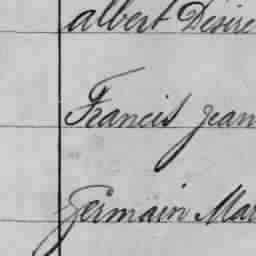 albert Désiré
Francis Jean
Germain Mar